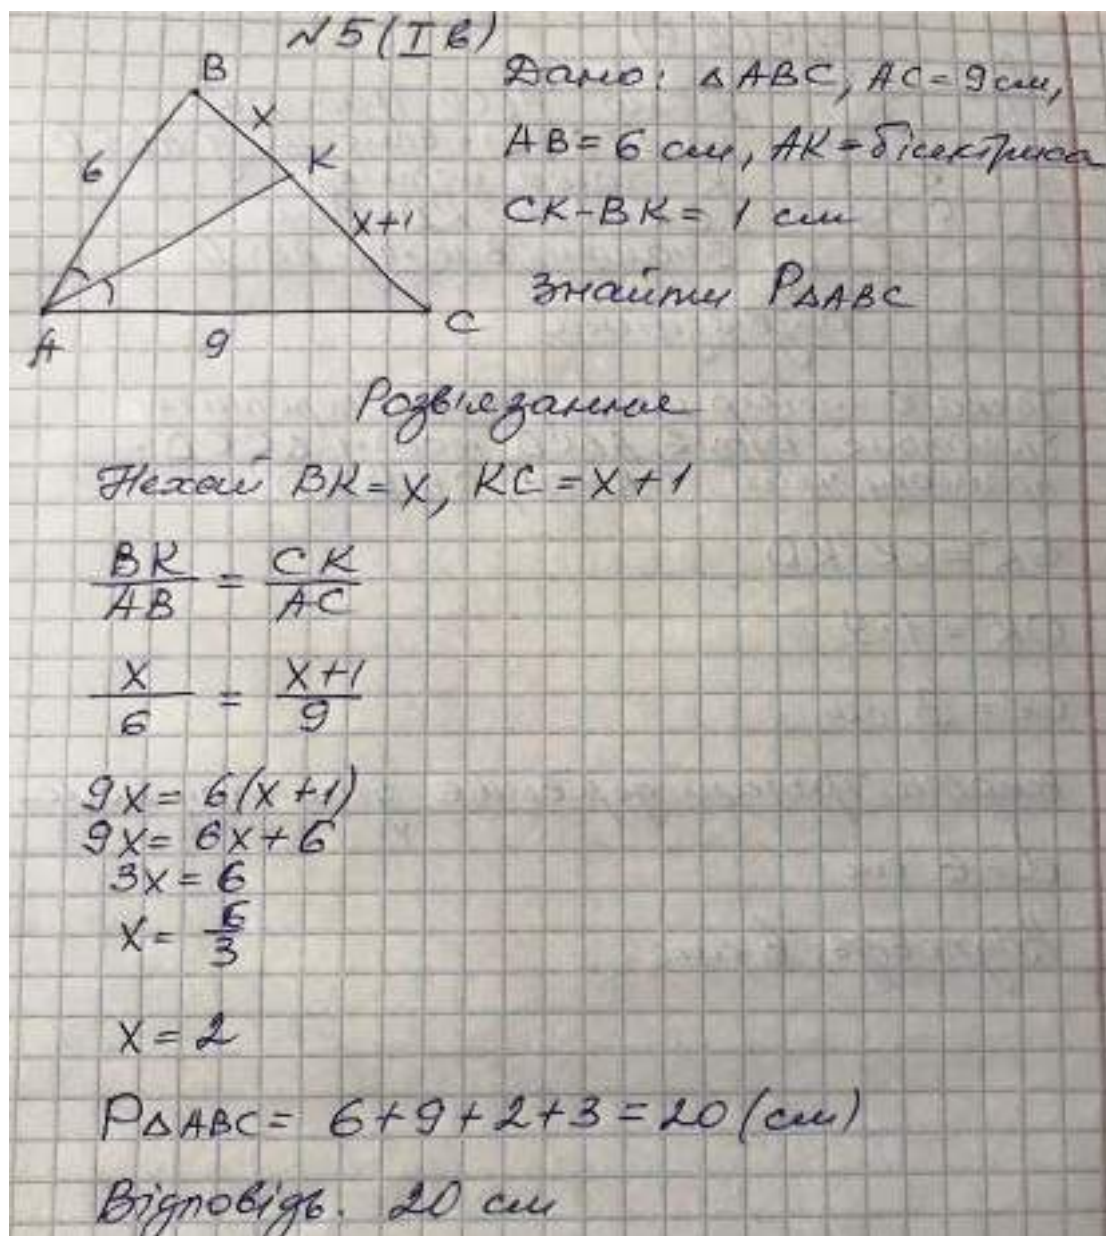 №5 (I в)
Дано: △ABC, AC=9 см,
AB=6 см, AK-бісектриса
CK-BK=1 см
Знайти P△ABC
B
x
6
K
x+1
A
9
C
Розв'язання
Нехай BK=x, KC=x+1
BK/AB = CK/AC
x/6 = x+1/9
9x=6(x+1)
9x=6x+6
3x=6
x=6/3
x=2
P△ABC=6+9+2+3=20(см)
Відповідь. 20 см